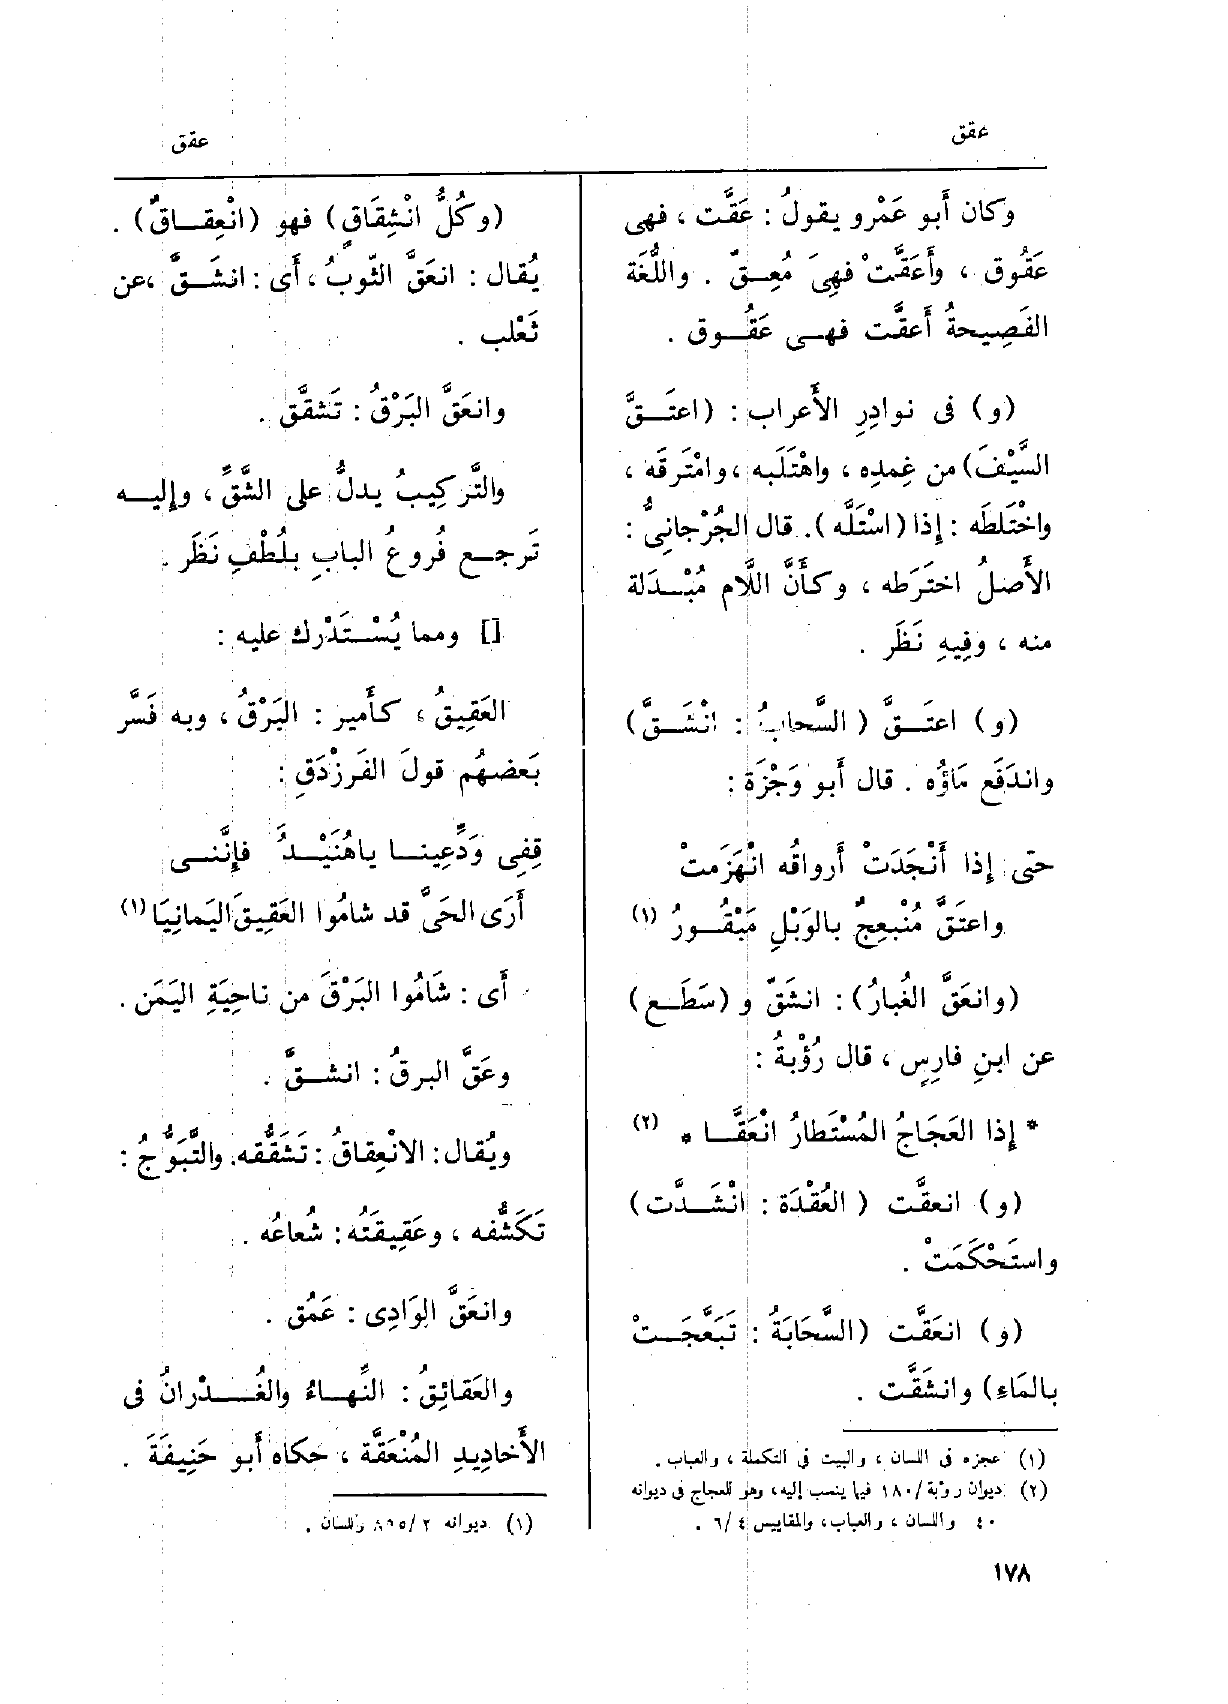 عقق
عقق
وكان أَبو عَمْرو يقولُ : عَقَّت ، فهى
عَقُوق ، وأَعَقَّتْ فهِىَ مُعِقّ . واللُّغَة
الفَصِيحةُ أَعقَّت فهـى عَقُـوق .
(و) فى نوادِرِ الأَعراب : (اعتَـقَّ
السَّيْفَ) من غِمدِه ، واهْتَلَبه ، وامْتَرقَه ،
واخْتَلطَه : إِذا (اسْتَلَّه) . قال الجُرْجانِىُّ :
الأَصلُ اختَرَطه ، وكأَنَّ اللَّام مُبْـدَلة
منه ، وفِيهِ نَظَر .
(و) اعتَـقَّ (السَّحابُ : انْشَـقَّ)
واندَفَع مَاؤُه . قال أَبو وَجْزَة :
حتى إِذا أَنْجَدَتْ أَرواقُه انْهَزَمتْ
واعتَقَّ مُنْبعِجٌ بالوَبْلِ مَبْقُـورُ (١)
(وانعَقَّ الغُبارُ) : انشَقّ و (سَطَـع)
عن ابنِ فارِسٍ ، قال رُؤْبةُ :
* إِذا العَجَاجُ المُسْتَطارُ انْعَقَّـا * (٢)
(و) انعقَّت (العُقْدَة : انْشَـدَّت)
واستَحْكَمَتْ .
(و) انعَقَّت (السَّحَابَةُ : تَبَعَّجَـتْ
بالمَاءِ) وانشَقَّت .
(١) عجزه فى اللسان ، والبيت فى التكملة ، والعباب .
(٢) ديوان رؤبة/١٨٠ فيما ينسب إليه، وهو للعجاج فى ديوانه
٤٠ واللسان ، والعباب، والمقاييس ٦/٤ .
(وكُلُّ انْشِقَاق) فهو (انْعِقـاقٌ) .
يُقال : انعَقَّ الثّوبُ ، أَى : انشَـقَّ ، عن
ثَعْلب .
وانعَقَّ البَرْقُ : تَشقَّق .
والتَّركِيبُ يدلُّ على الشَّقِّ ، وإِليـه
تَرجـع فُروعُ البابِ بلُطْفِ نَظَر .
[] ومما يُسْـتَدْرك عليه :
العَقِيقُ ، كأَمير : البَرْقُ ، وبه فَسَّر
بَعضهُم قولَ الفَرزْدَقِ :
قِفِى وَدِّعِينـا ياهُنَيْـدُ فإِنَّنـى
أَرَى الحَىَّ قد شامُوا العَقِيقَ اليَمانِيَا (١)
أَى : شَامُوا البَرْقَ من ناحِيَةِ اليَمَن .
وعَقَّ البرقُ : انشـقَّ .
ويُقال : الانْعِقاقُ : تَشَقُّقه. والتَّبَوُّجُ :
تَكَشُّفه ، وعَقِيقَتُه : شُعاعُه .
وانعَقَّ الوَادِى : عَمُق .
والعَقائِقُ : النِّهـاءُ والغُـدْرانُ فى
الأَخادِيدِ المُنْعَقَّة ، حكاه أَبو حَنِيفَةَ .
(١) ديوانه ٨٩٥/٢ واللسان .
١٧٨